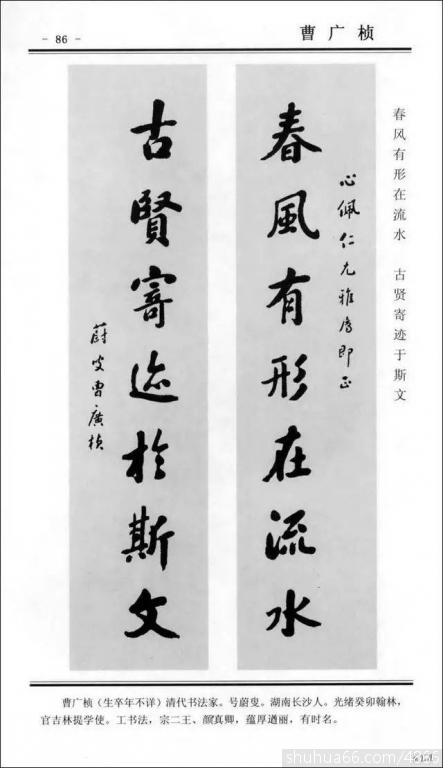 - 86 -
曹广桢
春风有形在流水 古贤寄迹于斯文
心佩仁兄雅属即正
春風有形在流水
古賢寄迹於斯文
蔚叟曹廣楨
曹广桢（生卒年不详）清代书法家。号蔚叟。湖南长沙人。光绪癸卯翰林，
官吉林提学使。工书法，宗二王、颜真卿，蕴厚遒丽，有时名。
shuhua66.com/4866